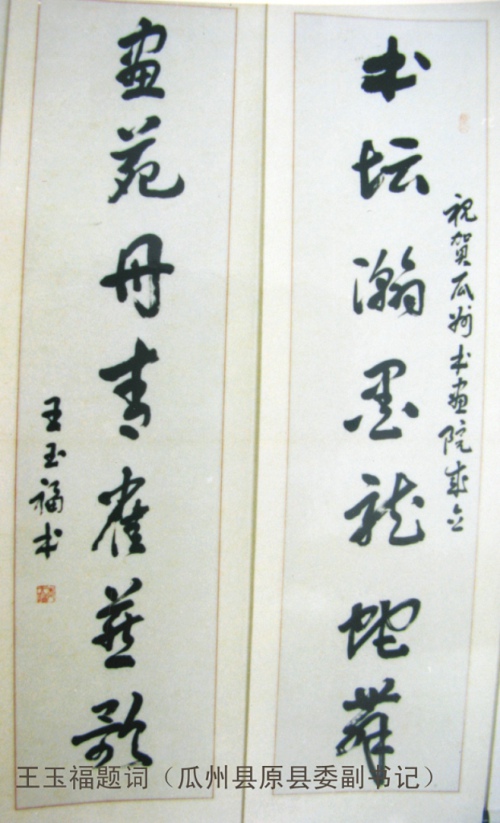 祝贺瓜州书画院成立
书坛瀚墨龙蛇舞
画苑丹青雀燕歌
王玉福书
王玉福题词（瓜州县原县委副书记）